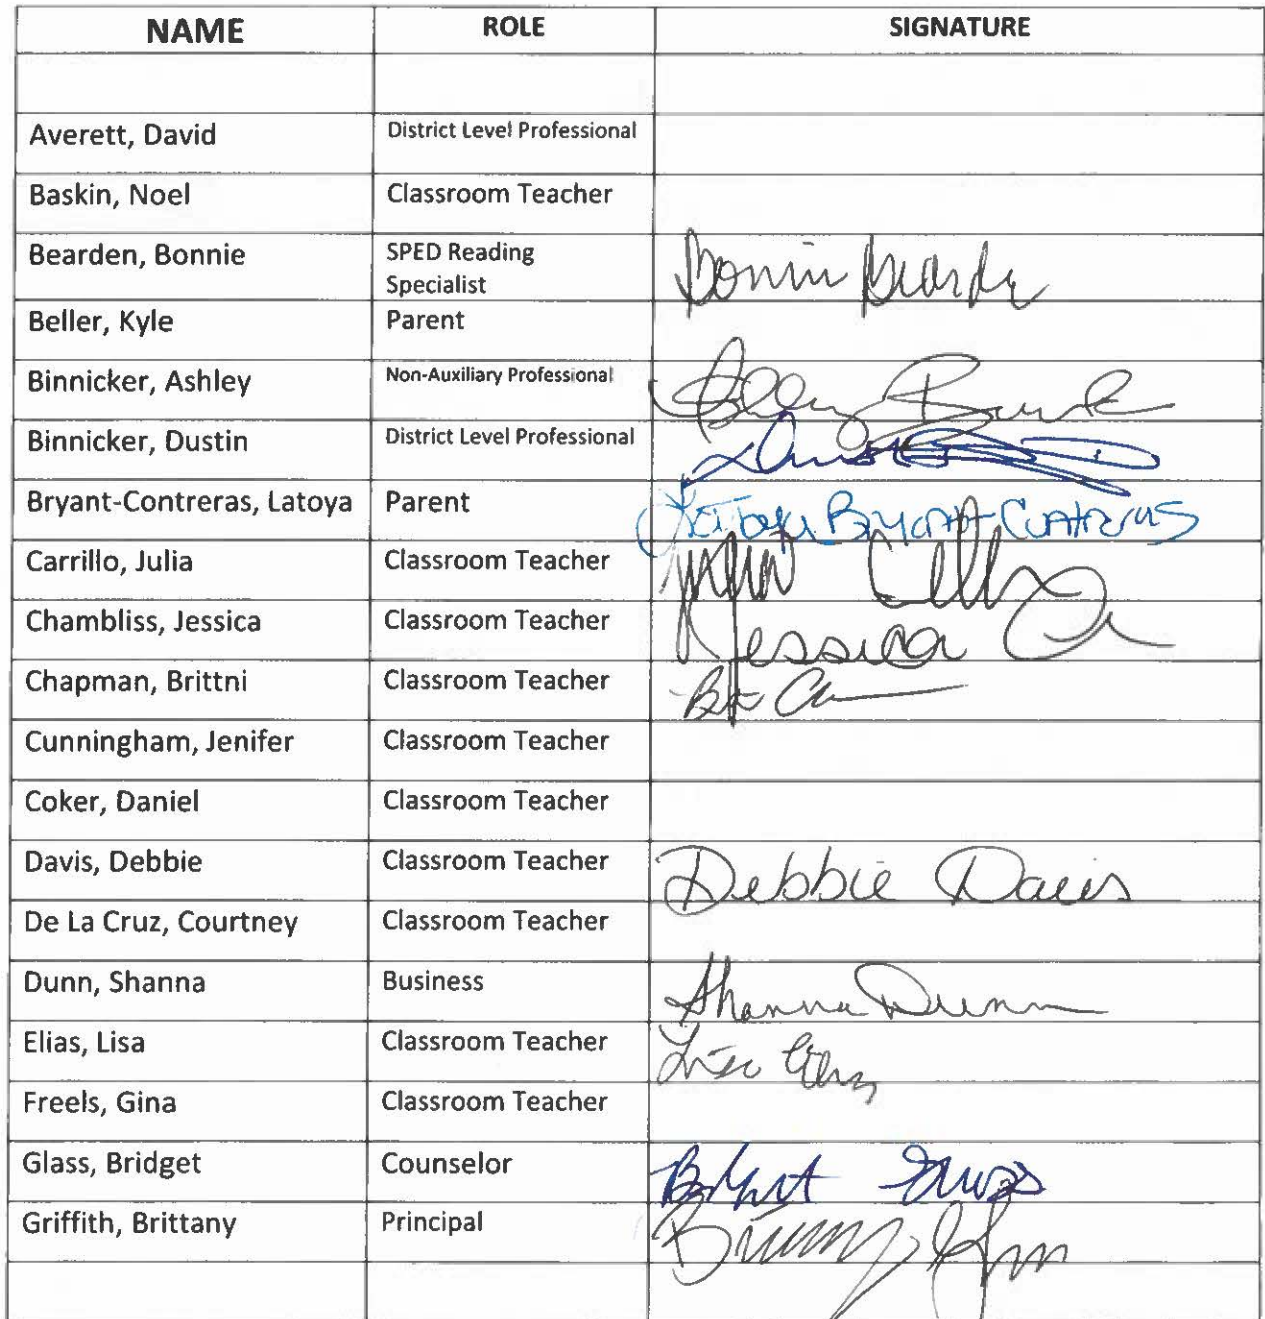 NAME ROLE SIGNATURE
Averett, David District Level Professional
Baskin, Noel Classroom Teacher
Bearden, Bonnie SPED Reading
Specialist
Beller, Kyle Parent
Binnicker, Ashley Non-Auxiliary Professional
Binnicker, Dustin District Level Professional
Bryant-Contreras, Latoya Parent Latoya Bryant-Contreras
Carrillo, Julia Classroom Teacher
Chambliss, Jessica Classroom Teacher Jessica
Chapman, Brittni Classroom Teacher
Cunningham, Jenifer Classroom Teacher
Coker, Daniel Classroom Teacher
Davis, Debbie Classroom Teacher Debbie Davis
De La Cruz, Courtney Classroom Teacher
Dunn, Shanna Business Shanna Dunn
Elias, Lisa Classroom Teacher Lisa Elias
Freels, Gina Classroom Teacher
Glass, Bridget Counselor
Griffith, Brittany Principal